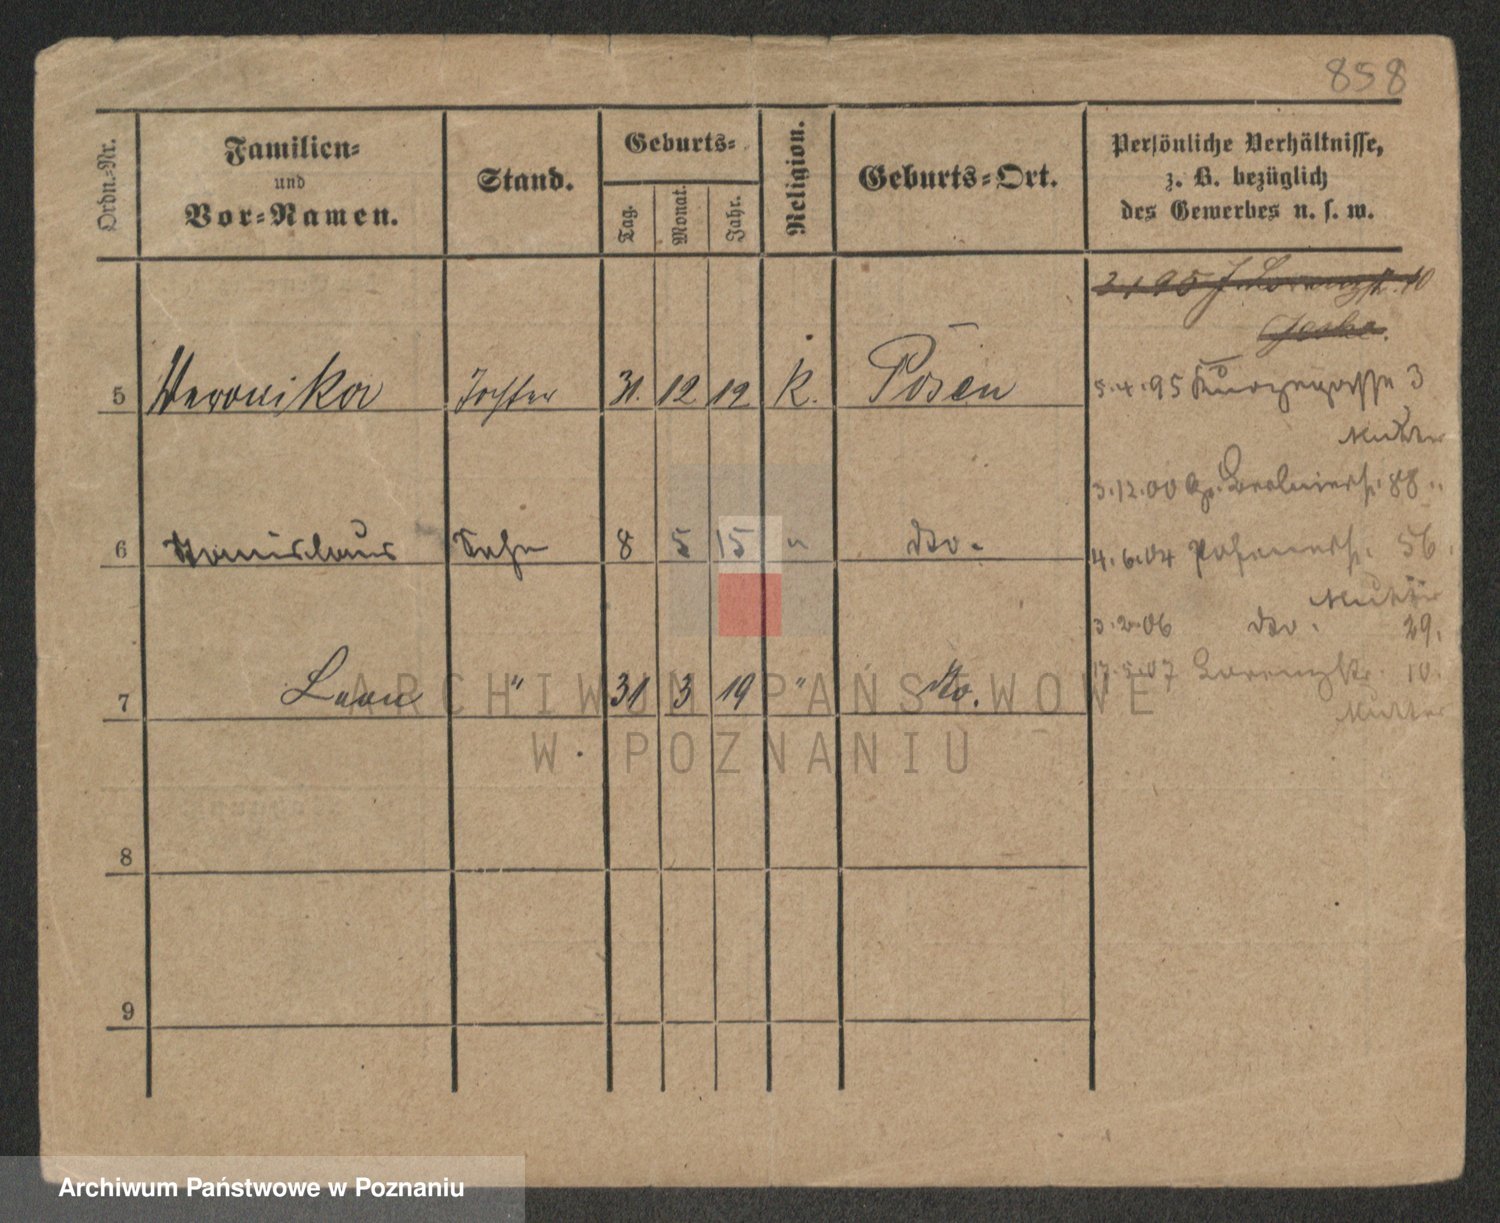 858
Ordn.-Nr.
Familien-
und
Vor-Namen.
Stand.
Geburts-
Tag.
Monat.
Jahr.
Religion.
Geburts-Ort.
Persönliche Verhältnisse,
z. B. bezüglich
des Gewerbes u. s. w.
5 Veronika Tochter 31. 12 12 K. Posen
5.4.95 3
Mutter
3.12.00 88
6 Stanislaus Sohn 8 5 15 " do.
4.6.04 Posenerstr. 56.
3.2.06 do. 29.
7 Leon " 31 3 19 " do.
17.5.07 Lorenzstr. 10.
Mutter
8
9
ARCHIWUM PAŃSTWOWE
W POZNANIU
Archiwum Państwowe w Poznaniu